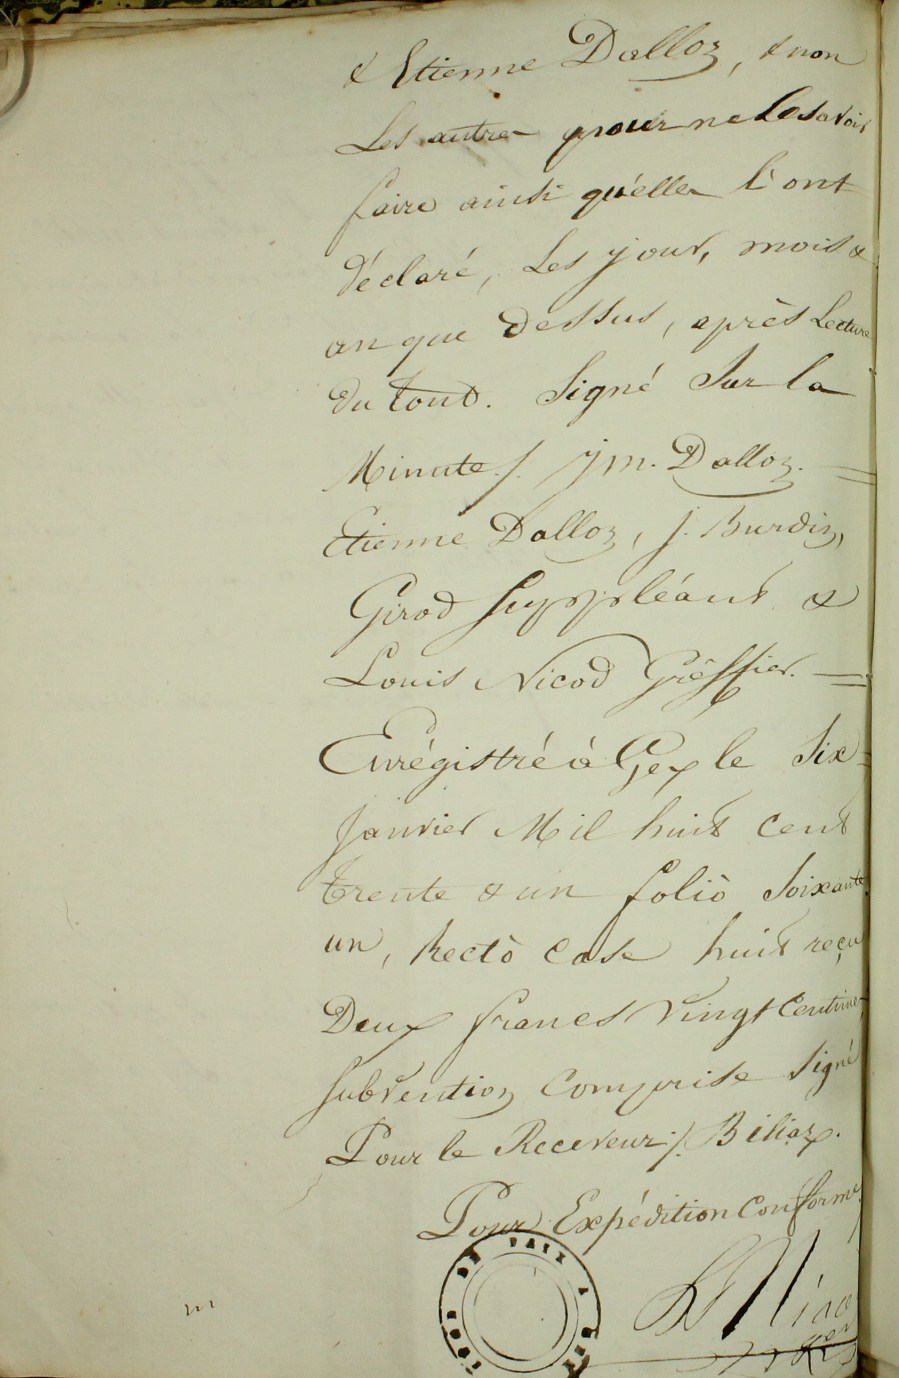 & Etienne Dalloz, & non
Les autres pour ne le savoir
faire ainsi qu'elles l'ont
déclaré, Les jour, mois &
an que dessus, après Lecture
du tout. Signé Sur la
Minute /. j m. Dalloz. =
Etienne Dalloz, j. Burdin,
Girod Suppléant &
Louis Nicod Gréffier. =
Enrégistré à Gex le Six
janvier Mil huit cent
trente & un foliò Soixante
un, Rectò case huit reçu
Deux francs vingt Centimes
subvention comprise Signé
Pour le Receveur /. Béliaz.
Pour Expédition Conforme
DE PAIX A